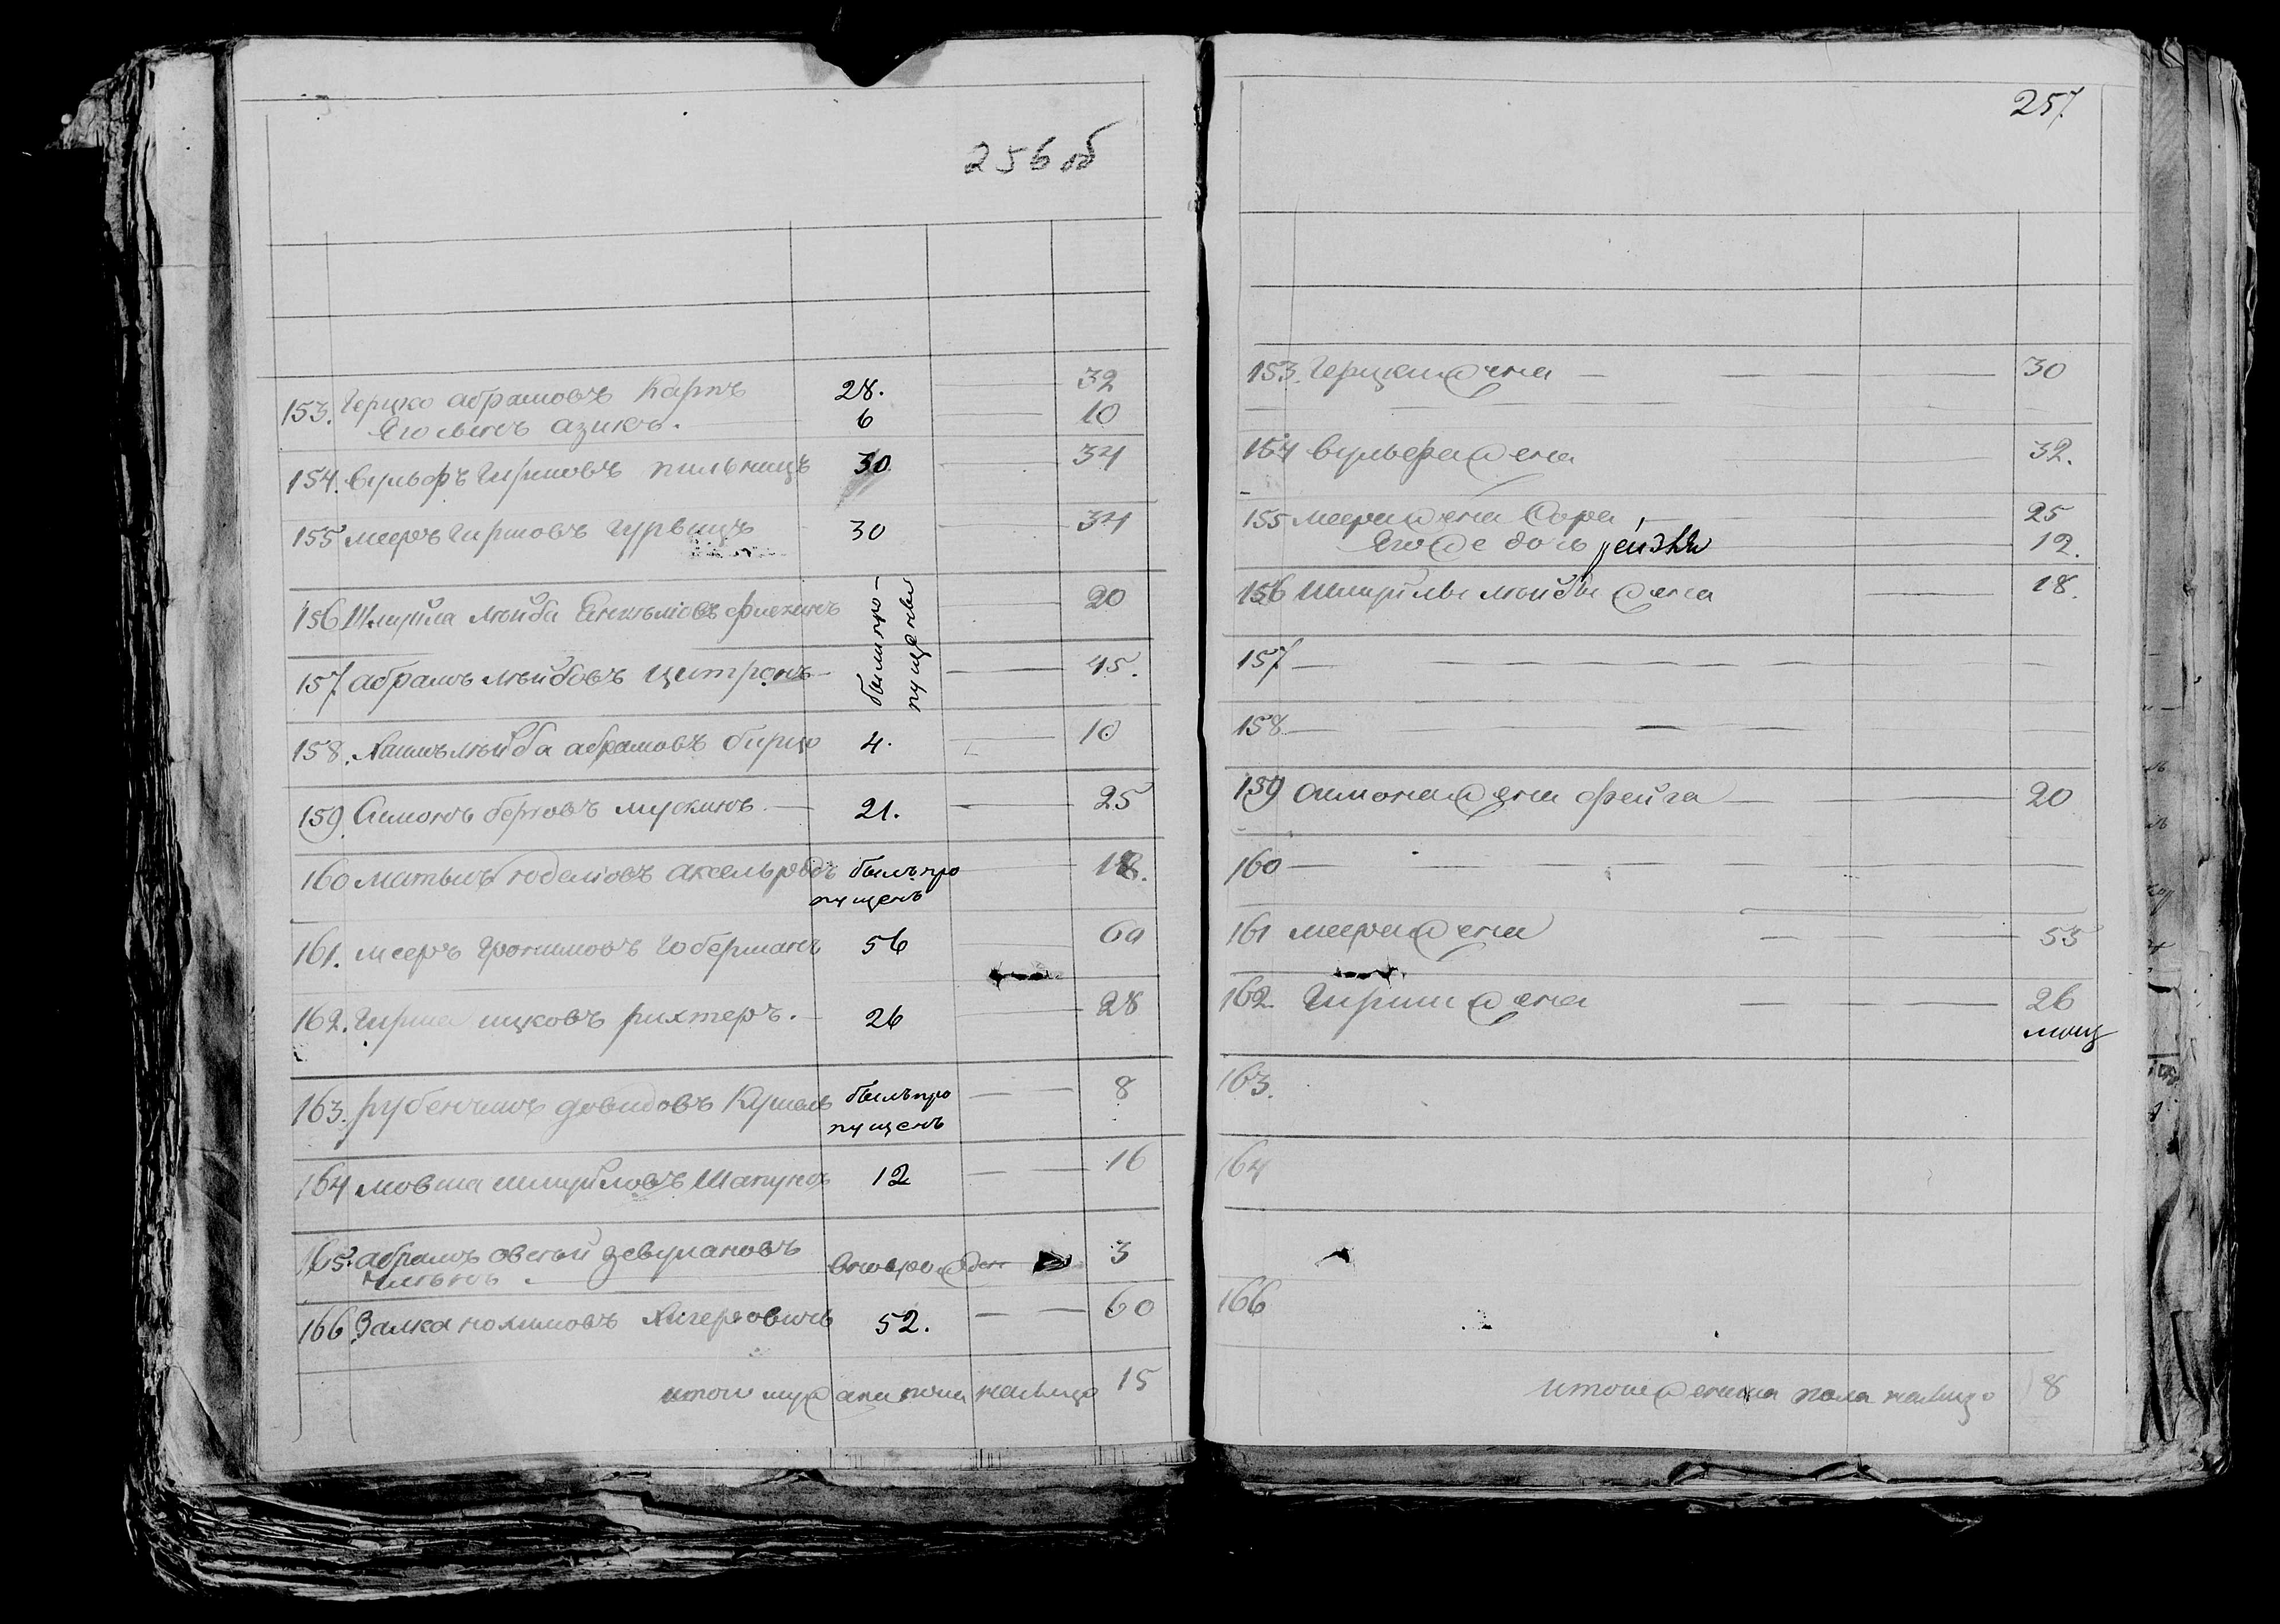 256 об
153. Герцко абрамовъ Карпъ 28. 32
Его сынъ азикъ. 6 10
154. Вульфъ Гиршовъ пильницъ 30 34
155 мееръ Гиршовъ Гурвицъ 30 34
156 Шмуйла Лейба 20
были про-
пущены
157. абрамъ Лейбовъ Цитронъ 45.
158. Хаимъ Лейба абрамовъ 4. 10
159. Симонъ берковъ мускинъ 21. 25
160 Матысъ Юделіовъ аксельродъ былъ про 18.
пущенъ
161. Мееръ Гоберманъ 56 60
162. Гирша ицковъ рихтеръ. 26 28
163. рубенъ довидовъ Кушель былъ про 8
пущенъ
164 мовша шмуйловъ Шапунъ 12 16
165. абрамъ овсей 3
166. Залка нохимовъ 52. 60
итого мужеска пола налицо 15
257.
153. Герцки жена 30
154 Вульфа жена 32.
155 меера жена Сора 25
Его же дочь рейзя 12.
156 Шмуйлы лейбы жена 18.
157
158
159 Симона жена фейга 20
160
161 меера жена 53
162. Гирши жена 26
163.
164
166
итого женска пола налицо 8